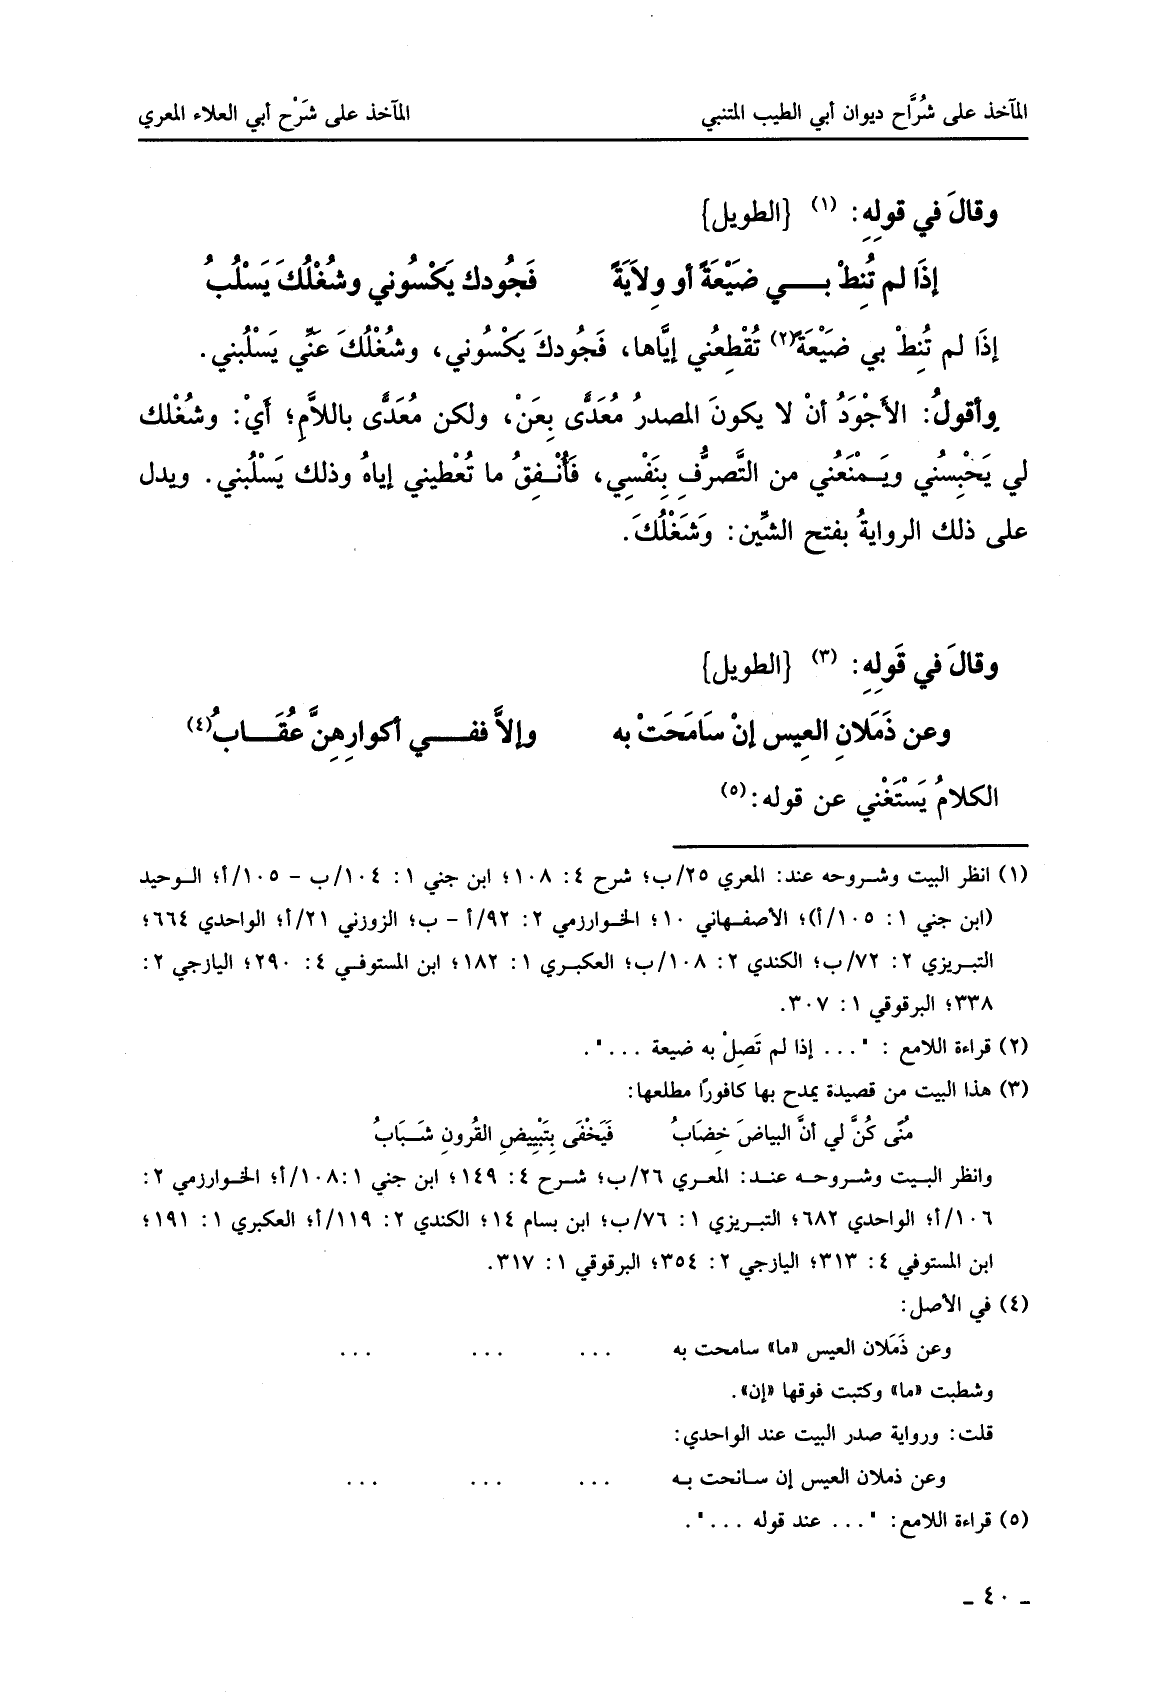 المآخذ على شُرَّاح ديوان أبي الطيب المتنبي المآخذ على شَرْح أبي العلاء المعري
وقالَ في قولِهِ: (١) {الطويل}
إذَا لم تُنِطْ بـــي ضَيْعَةً أو وِلاَيَةً فَجُودك يَكْسُوني وشُغْلُكَ يَسْلُبُ
إذَا لم تُنِطْ بي ضَيْعَةً(٢) تُقْطِعُني إيَّاها، فَجُودكَ يَكْسُوني، وشُغْلُكَ عَنِّي يَسْلُبني.
وأقولُ: الأَجْوَدُ أنْ لا يكونَ المصدرُ مُعَدًّى بِعَنْ، ولكن مُعَدًّى باللاَّمِ؛ أَيْ: وشُغْلك
لي يَحْبِسُني ويَـمْنَعُني من التَّصرُّفِ بِنَفْسِي، فَأُنْـفِقُ ما تُعْطيني إياهُ وذلك يَسْلُبني. ويدل
على ذلك الروايةُ بفتح الشِّين: وَشَغْلُكَ.
وقالَ في قَولِهِ: (٣) {الطويل}
وعن ذَمَلانِ العِيس إنْ سَامَحَتْ به وإلاَّ ففـــي أكوارِهِنَّ عُقَـــابُ(٤)
الكلامُ يَسْتَغْني عن قوله:(٥)
(١) انظر البيت وشروحه عند: المعري ٢٥/ب؛ شرح ٤: ١٠٨؛ ابن جني ١: ١٠٤/ب - ١٠٥/أ؛ الـوحيد
(ابن جني ١: ١٠٥/أ)؛ الأصفـهاني ١٠؛ الخـوارزمي ٢: ٩٢/أ - ب؛ الزوزني ٢١/أ؛ الواحدي ٦٦٤؛
التبـريزي ٢: ٧٢/ب؛ الكندي ٢: ١٠٨/ب؛ العكبـري ١: ١٨٢؛ ابن المستوفـي ٤: ٢٩٠؛ اليازجي ٢:
٣٣٨؛ البرقوقي ١: ٣٠٧.
(٢) قراءة اللامع : "... إذا لم تَصِلْ به ضيعة ...".
(٣) هذا البيت من قصيدة يمدح بها كافورًا مطلعها:
مُنًى كُنَّ لي أنَّ البياضَ خِضَابُ فَيَخْفَى بِتَبْيِيضِ القُرونِ شَـبَابُ
وانظر البـيت وشـروحـه عنـد: المعـري ٢٦/ب؛ شـرح ٤: ١٤٩؛ ابن جني ١:١٠٨/أ؛ الخـوارزمي ٢:
١٠٦/أ؛ الواحدي ٦٨٢؛ التبـريزي ١: ٧٦/ب؛ ابن بسام ١٤؛ الكندي ٢: ١١٩/أ؛ العكبري ١: ١٩١؛
ابن المستوفي ٤: ٣١٣؛ اليازجي ٢: ٣٥٤؛ البرقوقي ١: ٣١٧.
(٤) في الأصل:
وعن ذَمَلان العيس «ما» سامحت به ... ... ...
وشطبت «ما» وكتبت فوقها «إن».
قلت: ورواية صدر البيت عند الواحدي:
وعن ذملان العيس إن سـانحت بـه ... ... ...
(٥) قراءة اللامع: "... عند قوله ...".
- ٤٠ -